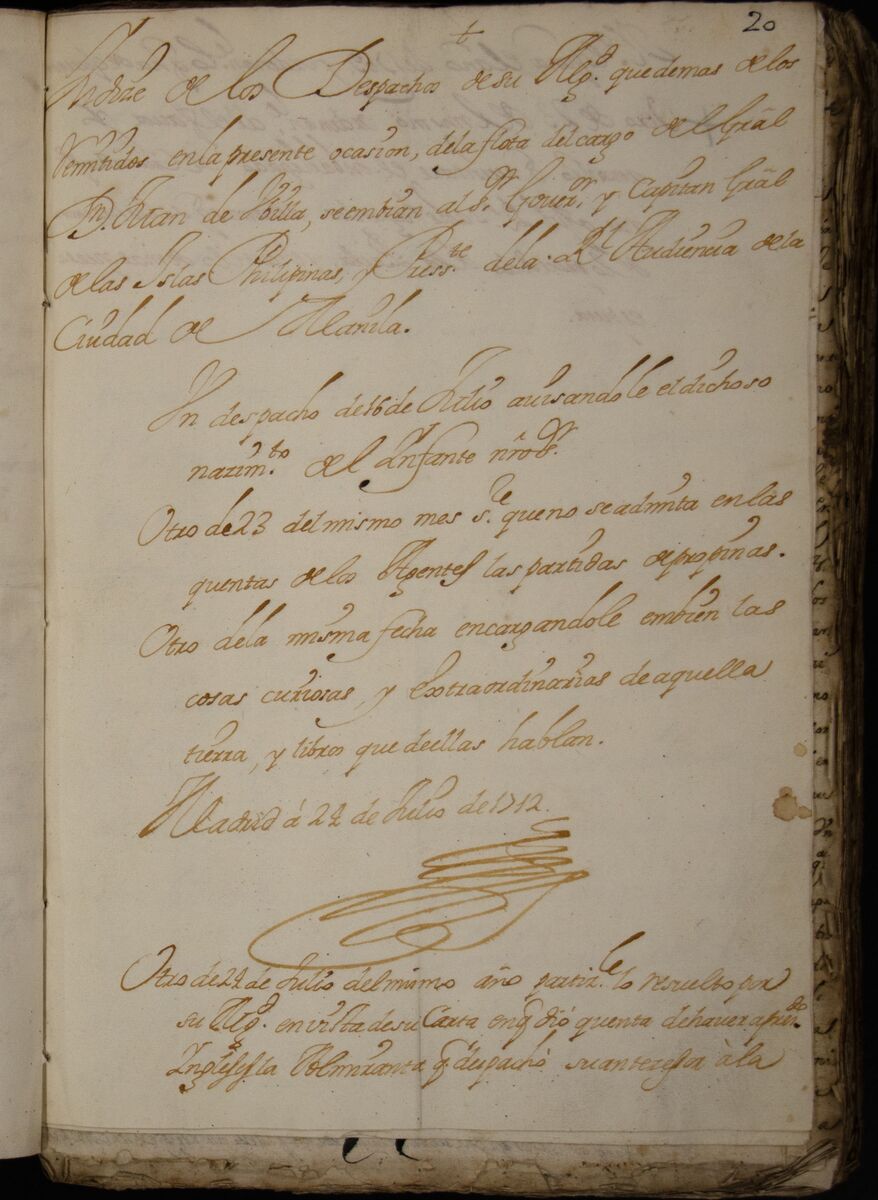 20
+
Yndize de los Despachos de su Mg.d que demas de los
Remitidos en la presente ocasion, de la flota del cargo del Grãl
D.n Juan de Ubilla, se embian al S.r Gover.or y Capitan Grãl
de las Islas Philipinas, y Press.te de la R.l Audiencia de la
Ciudad de Manila.
Vn despacho de 16 de Julio avisandole el dichoso
nazim.to del Ynfante nr̃o S.r
Otro de 23 del mismo mes s.re que no se admita en las
quentas de los Agentes las partidas de propinas.
Otro de la misma fecha encargandole embien las
cosas curiosas, y extraordinarias de aquella
tierra, y libros que de ellas hablan.
Madrid á 24 de Julio de 1712.
Otro de 24 de Julio del mismo año partiz.le lo resuelto por
su Mg.d en vista de su Carta en q̃ dió quenta de haver apres.do
Yngleses la Almiranta q̃ despachó su antecesor à la